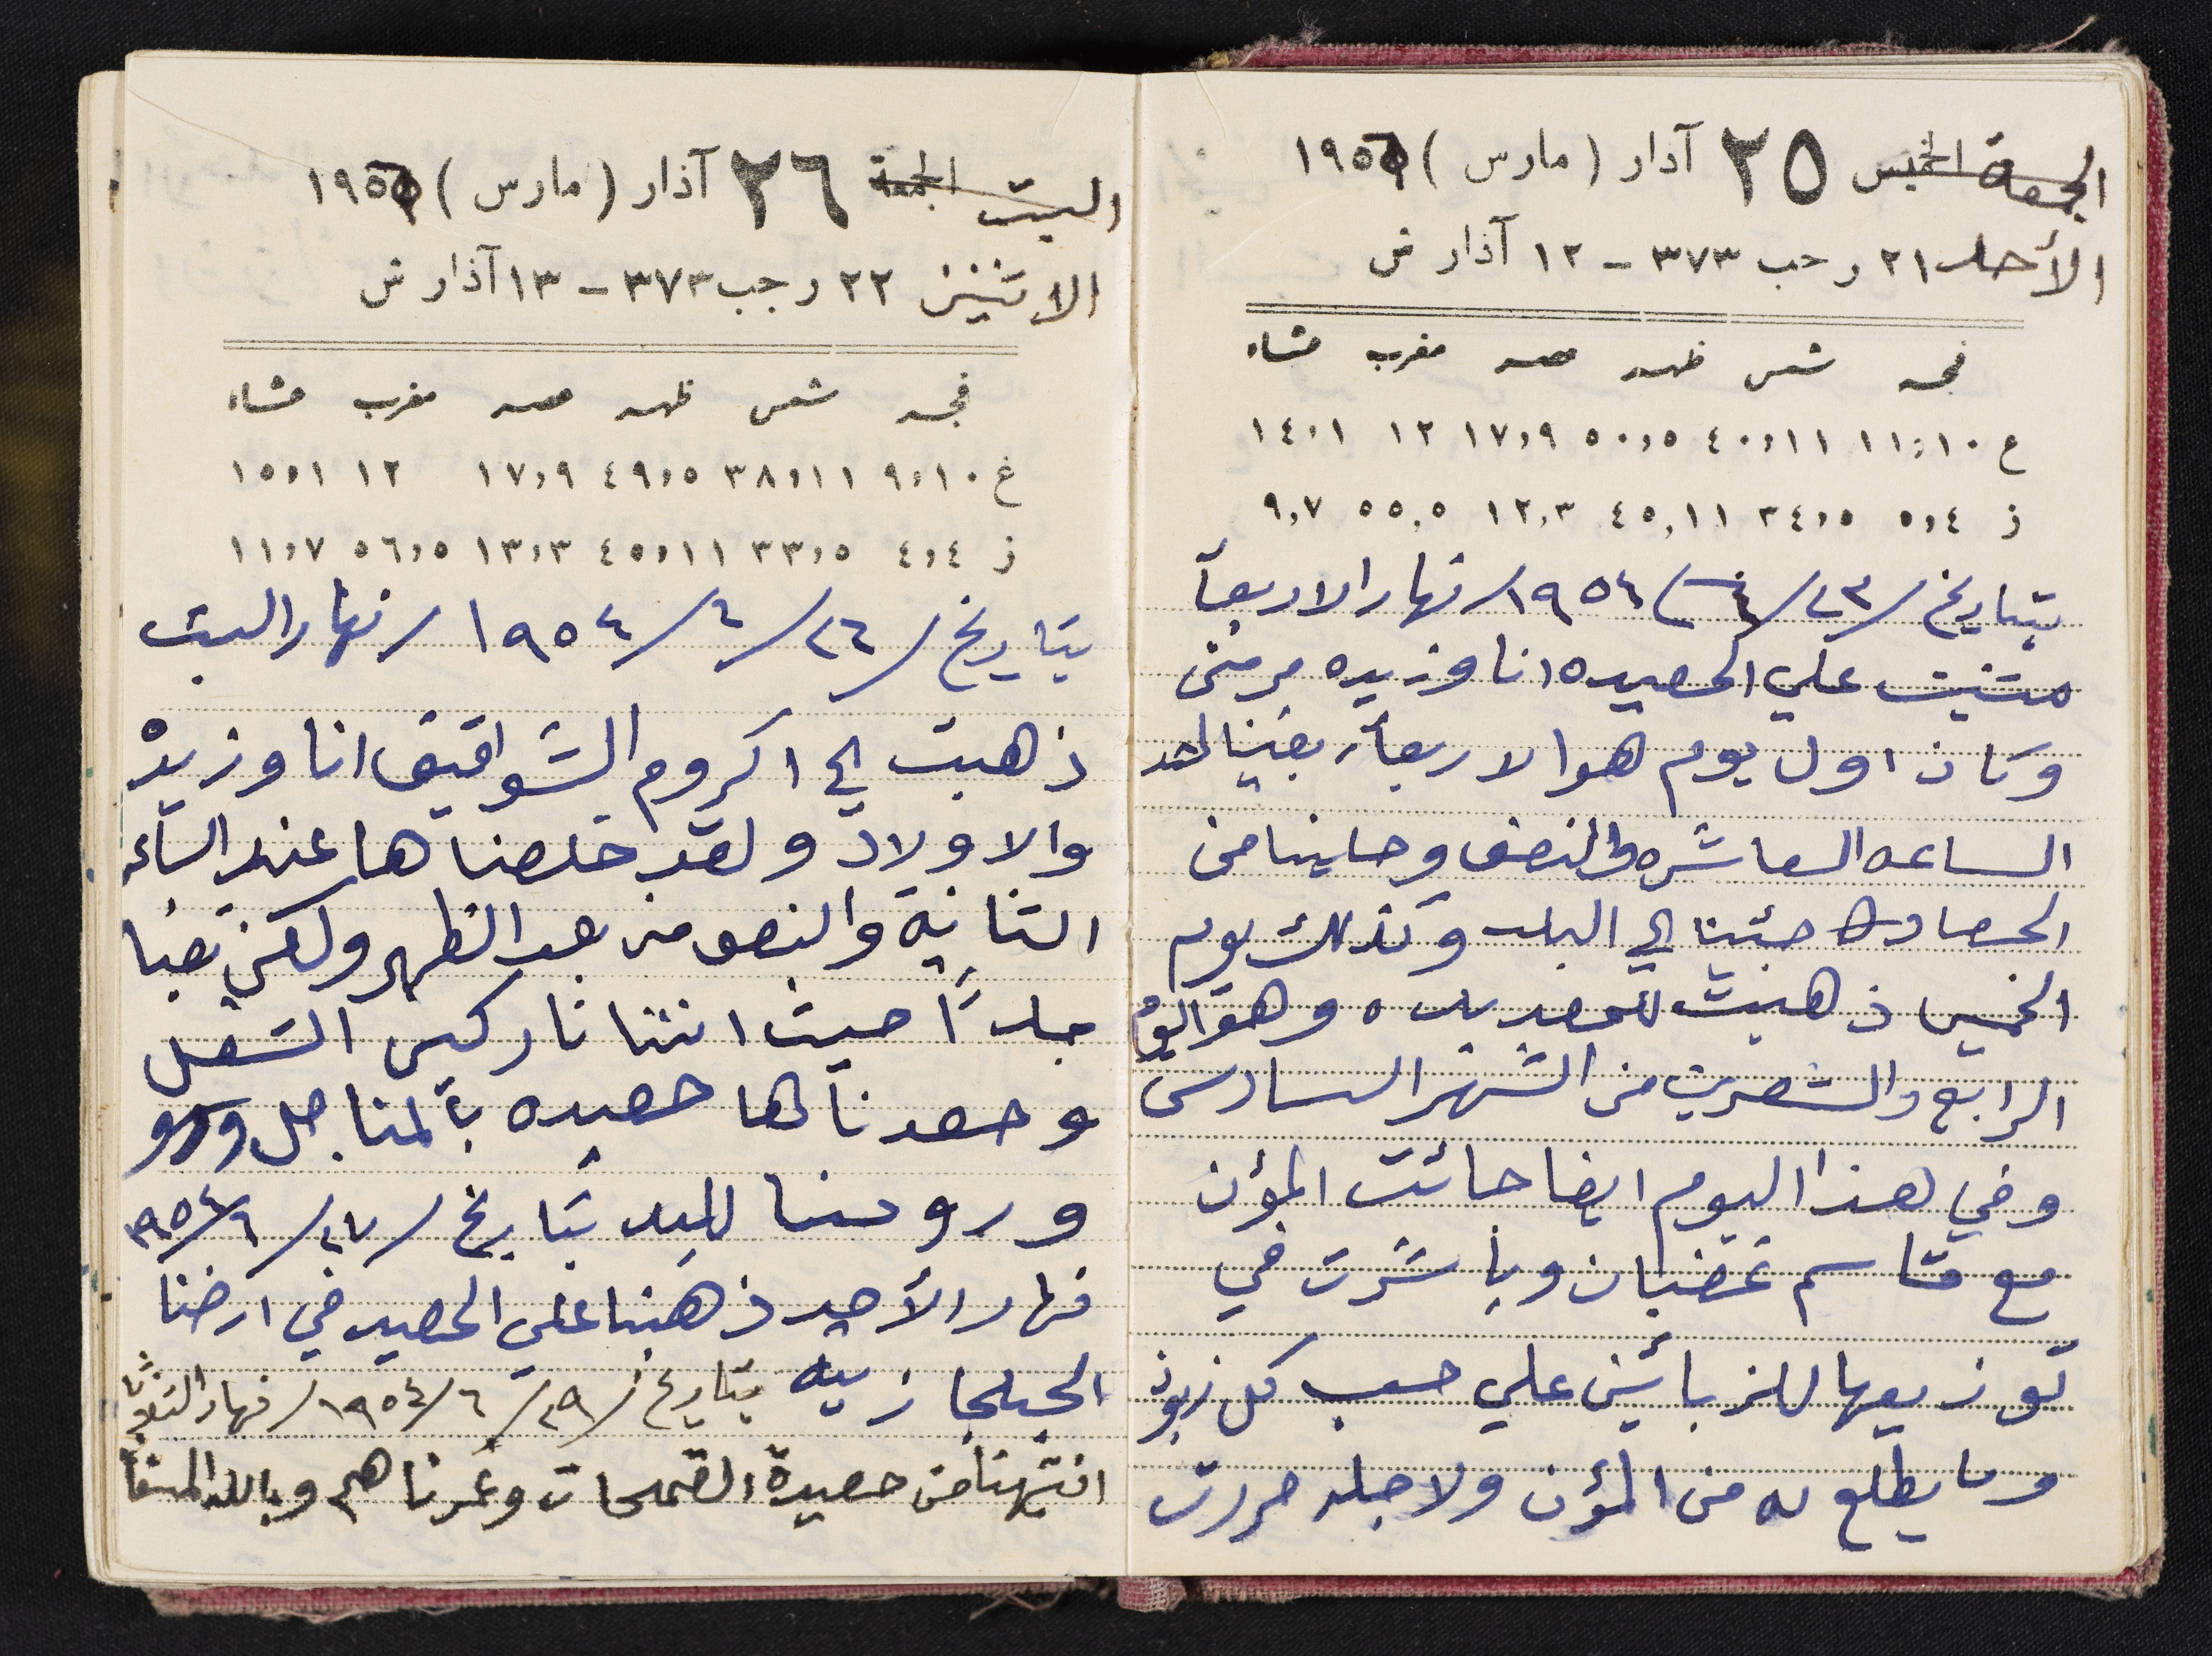 الجمعة الخميس ٢٥ آذار (مارس) ١٩٥٥
الأحد ٢١ رجب ٣٧٣ - ١٢ آذار ش
فجر شمس ظهر عصر مغرب عشاء
غ ١١,١٠ ٤٠,١١ ٥٠,٥ ١٧,٩ ١٢ ١٤,١
ز ٥,٤ ٣٤,٥ ٤٥,١١ ١٢,٣ ٥٥,٥ ٩,٧
بتاريخ /٢٣/٦/١٩٥٤/ نهار الاربعآ
مشيت علي الحصيده انا وزيده مرتى
وكان اول يوم هو الاربعآ بقينا لحد
الساعه العاشره والنصف وحلينا من
الحصاده جئنا الي البلد وكذلك يوم
الخميس ذهبت للحصيده وهو اليوم
الرابع والعشرين من الشهر السادس
وفي هذا اليوم ايضا جائت المؤن
مع قاسم غضبان وباشرت في
توزيعها للزبائين علي حسب كل زبون
وما يطلع له من المؤن ولاجله حررت
السبت الجمعة ٢٦ آذار (مارس) ١٩٥٥
الاثنين ٢٢ رجب ٣٧٣ - ١٣ آذار ش
فجر شمس ظهر عصر مغرب عشاء
غ ٩,١٠ ٣٨,١١ ٤٩,٥ ١٧,٩ ١٢ ١٥,١
ز ٤,٤ ٣٣,٥ ٤٥,١١ ١٣,٣ ٥٦,٥ ١١,٧
بتاريخ /٢٦/٦/١٩٥٤/ نهار السبت
ذهبت الي اكروم الشواقيق انا وزيده
والاولاد ولقد خلصناها عند الساعه
الثانية والنصف من بعد الظهر ولكن تعبنا
جدآ حيث اننا تاركين الشغل
وحصدنالها حصيده بالمناجل
وروحنا للبلد بتاريخ /٢٧/٦/١٩٥٤
نهار الأحد ذهبنا علي الحصيد في ارضنا
بتاريخ /٢٩/٦/١٩٥٤/ نهار الثلاثا
انتهينا من حصيدة القمحات وغمرناهم وبالله المستعان